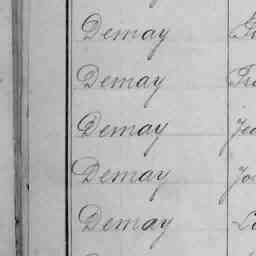 Demay
Demay
Demay
Demay
Demay